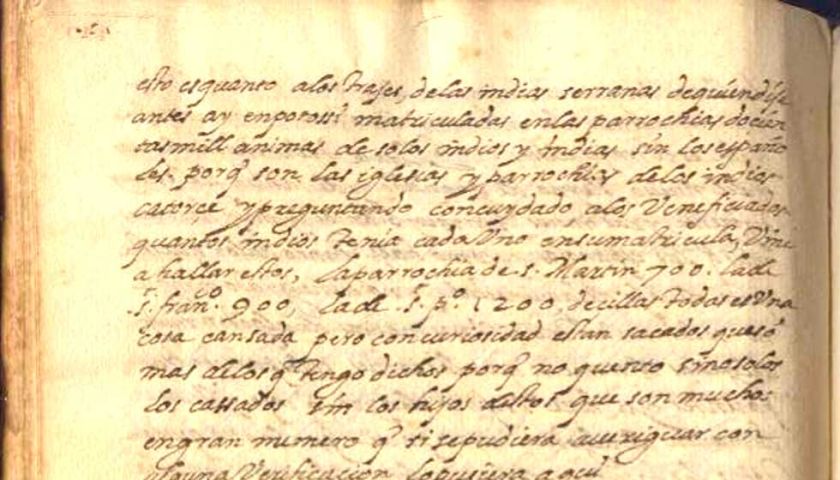 esto es quanto a los trajes, de las indias serranas de quien dise
antes ay en potossi matriculadas en las parrochias docien
tas mill animas de solos indios y Indias sin los españo
les. porq̃ son las iglesias y parrochias de los indios
catorçe y preguntando con cuydado a los Veneficiados
quantos indios tenia cada Uno en su matricula, Vine
a hallar estos, la parrochia de S. Martin 700. la de
S. franº. 900, la de S. pº. 1200, decillas todas es Una
cosa cansada pero con curiosidad estan sacados que sõ
mas de los q̃ tengo dichos porq̃ no quento sino solos
los cassados sin los hijos destos que son muchos
en gran numero q̃ si se pudiera averiguar con
alguna Verificacion lo pusiera aqui